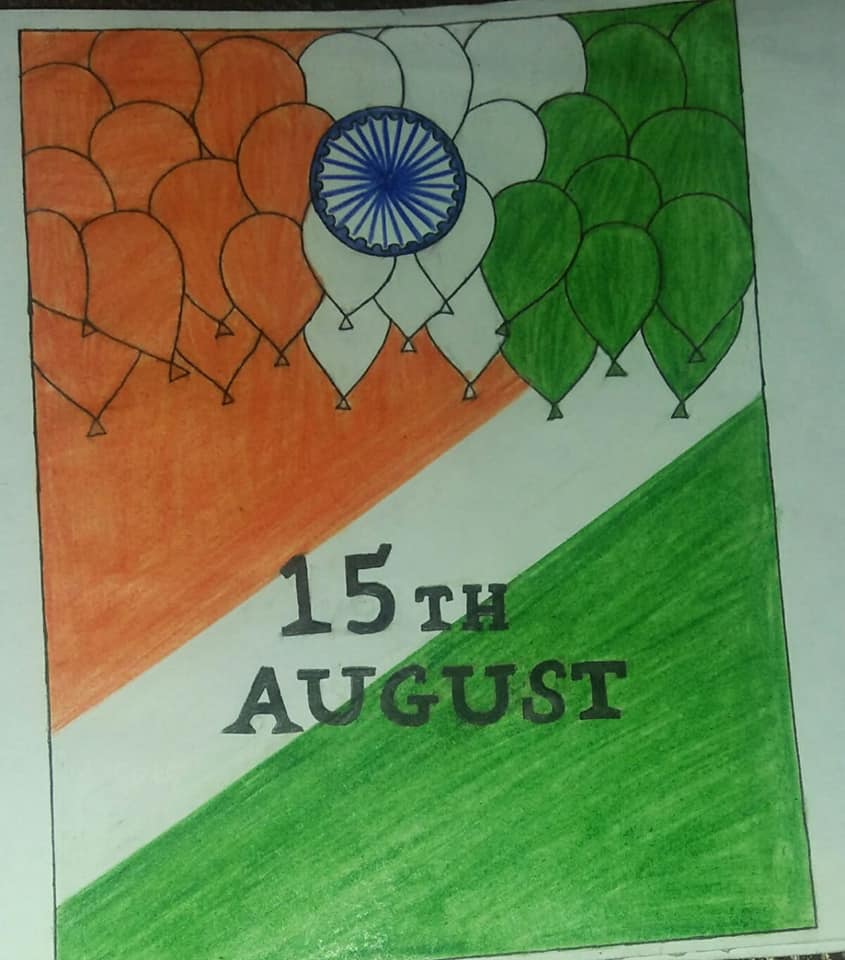 15TH
AUGUST